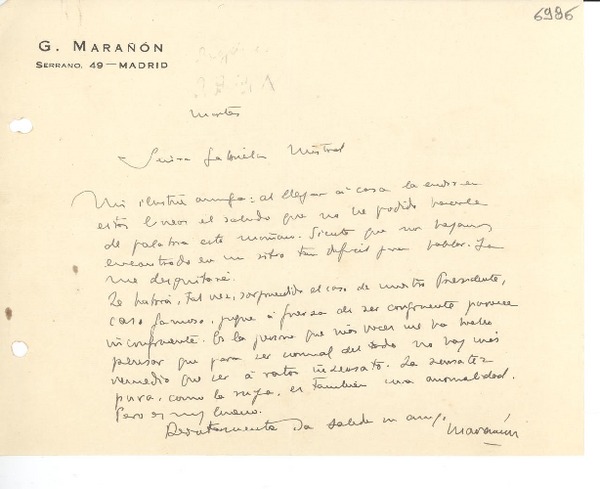 6986
G. MARAÑÓN
SERRANO, 49 — MADRID
Martes
Señora Gabriela Mistral
Mi ilustre amiga: al llegar á casa la envio en
estas lineas el saludo que no he podido hacerla
de palabra esta mañana. Siento que nos hayamos
encontrado en un sitio tan dificil para hablar. Ya
me desquitaré.
Le habrá, tal vez, sorprendido el caso de nuestro Presidente,
caso famoso, pues á fuerza de ser congruente parece
incongruente. Es la persona que más veces me ha hecho
pensar que para ser normal del todo no hay más
remedio que ser á ratos insensato. La sensatez
pura, como la suya, es también una anormalidad.
Pero es muy bueno.
Devotamente la saluda su amigo
Marañón